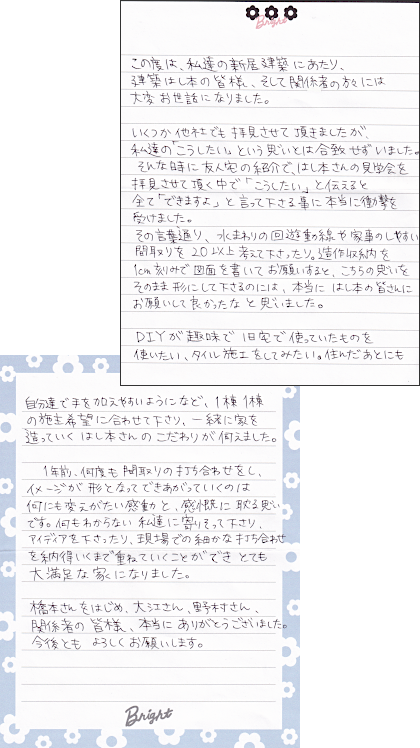 Bright
この度は、私達の新居建築にあたり、
建築はし本の皆様、そして関係者の方々には
大変お世話になりました。
いくつか他社でも拝見させて頂きましたが、
私達の「こうしたい」という思いとは合致せずいました。
そんな時に友人宅の紹介で、はし本さんの見学会を
拝見させて頂く中で「こうしたい」と伝えると
全て「できますよ」と言って下さる事に本当に衝撃を
受けました。
その言葉通り、水まわりの回遊動線や家事のしやすい
間取りを20以上考えて下さったり。造作収納を
1cm刻みで図面を書いてお願いすると、こちらの思いを
そのまま形にして下さるのには、本当に はし本の皆さんに
お願いして良かったな と思いました。
DIYが趣味で旧宅で使っていたものを
使いたい、タイル施工をしてみたい。住んだあとにも
自分達で手を加えやすいようになど、1棟1棟
の施主希望に合わせて下さり、一緒に家を
造っていく はし本さんの こだわりが伺えました。
1年前、何度も 間取りの打ち合わせをし、
イメージが 形となってできあがっていくのは
何にも変えがたい感動と、感慨に耽る思い
です。何もわからない 私達に寄りそって下さり、
アイデアを下さったり、現場での細かな打ち合わせ
を納得いくまで重ねていくことができ とても
大満足な 家になりました。
橋本さんをはじめ、大江さん、野村さん、
関係者の 皆様、本当に ありがとうございました。
今後とも よろしくお願いします。
Bright